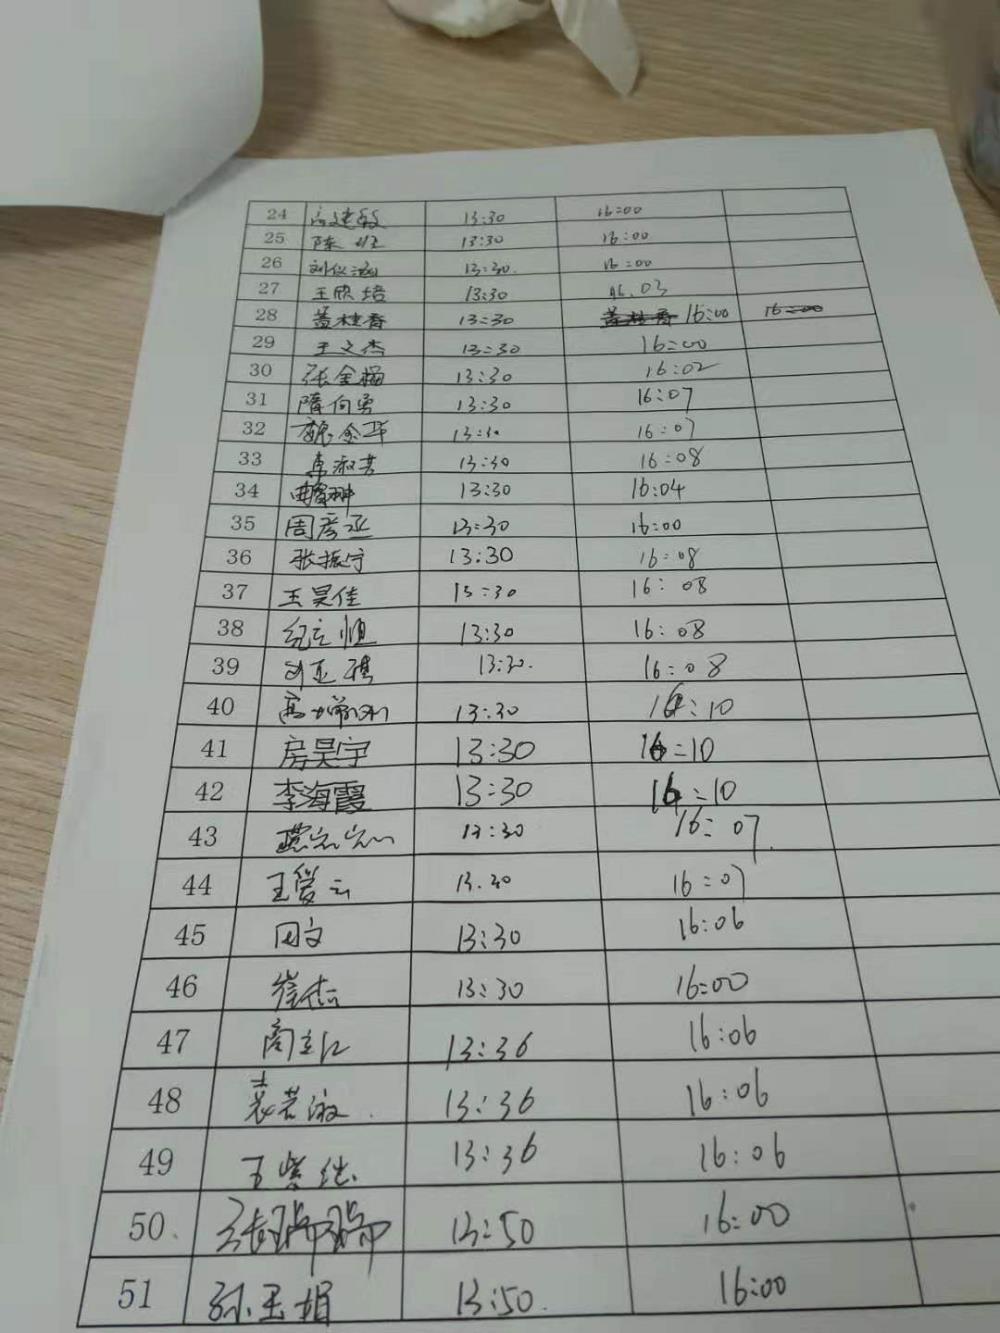 24 高建敏 13:30 16:00
25 陈 13:30 16:00
26 刘仪涵 13:30. 16:00
27 王欣培 13:30 16.03
28 盖桂香 13:30 盖桂香 16:00 16:00
29 王文杰 13:30 16:00
30 张金梅 13:30 16:02
31 隋向勇 13:30 16:07
32 魏金华 13:30 16:07
33 李淑芳 13:30 16:08
34 13:30 16:04
35 周彦丞 13:30 16:00
36 张振宁 13:30 16:08
37 王昊佳 13:30 16:08
38 纪立恒 13:30 16:08
39 刘亚琪 13:30. 16:08
40 高 13:30 16:10
41 房昊宇 13:30 16:10
42 李海霞 13:30 16:10
43 13:30 16:07
44 王爱云 13.30 16:07
45 周文 13:30 16:06
46 崔杰 13:30 16:00
47 商立江 13:36 16:06
48 袁若淑 13:36 16:06
49 王紫 13:36 16:06
50 张瑞瑞 13:50 16:00
51 孙玉娟 13:50. 16:00